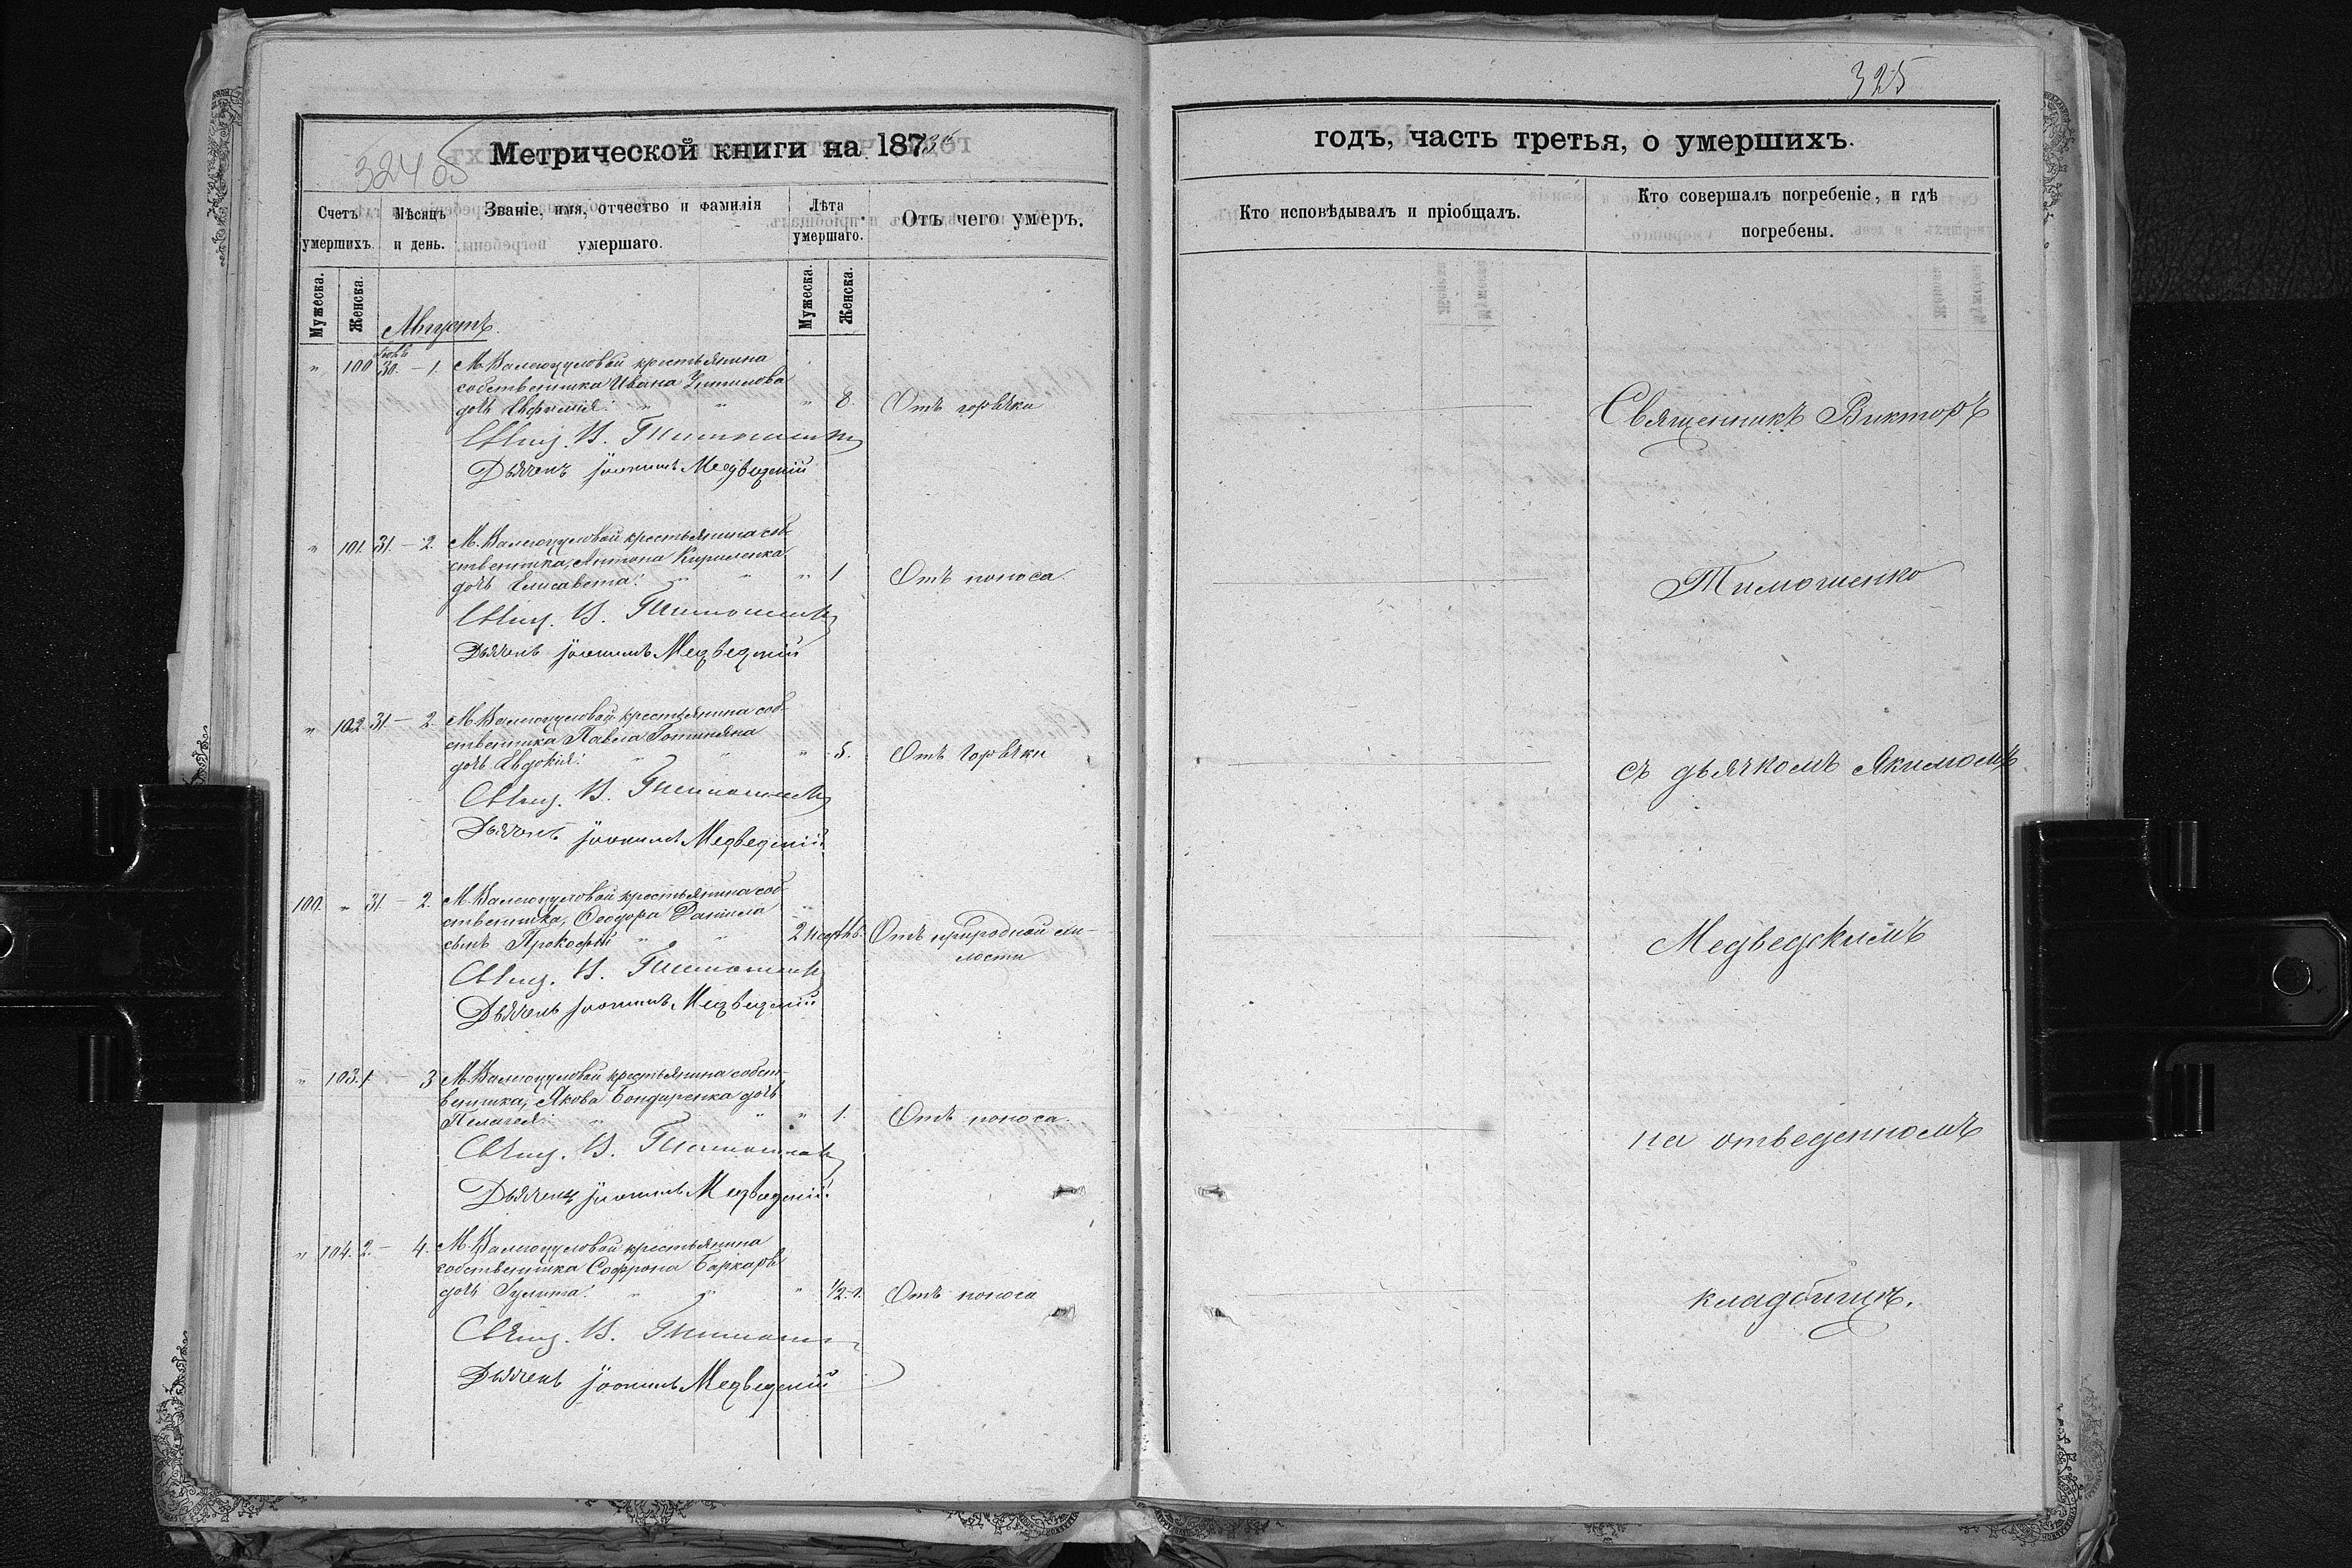 324 об
Метрической книги на 1873й
Счетъ умершихъ.
Мѣсяцъ и день.
Званіе, имя, отчество и фамилія умершаго.
Лѣта умершаго.
Отъ чего умеръ.
Мужеска.
Женска.
Мужеска.
Женска.
Августъ
" 100 Іюль 30. - 1. М. Валегоцуловой крестьянина
собственника Ивана
дочь Евфимія. " " " 8. Отъ горячки
Свящ. В. Тимошенко
Дьячекъ Іоакимъ Медведскій
" 101. 31. - 2. М. Валегоцуловой крестьянина соб-
ственника, Антона Кириленка
дочь Елисавета. " " " 1 Отъ поноса.
Свящ. В. Тимошенко
Дьячекъ Іоакимъ Медведскій
" 102. 31. - 2. М. Валегоцуловой крестьянина соб-
ственника Павла
дочь Евдокія. " " " 5. Отъ горячки
Свящ. В. Тимошенко
Дьячекъ Іоакимъ Медведскій
100. " 31. - 2. М. Валегоцуловой крестьянина соб-
ственника, Ѳеодора Данила
сынъ Прокофій " " 2 недѣль. Отъ природной сла-
бости
Свящ. В. Тимошенко
Дьячекъ Іоакимъ Медведскій
" 103. 1. - 3 М. Валегоцуловой крестьянина собст-
венника, Якова Бондаренка дочь
Пелагея. " " " 1. Отъ поноса.
Свящ. В. Тимошенко
Дьячекъ Іоакимъ Медведскій
" 104. 2. - 4. М. Валегоцуловой крестьянина
собственника Софрона Баркаря
дочь Іулита. " " " 1/2 г. Отъ поноса
Свящ. В. Тимошенко
Дьячекъ Іоакимъ Медведскій
325
годъ, часть третья, о умершихъ.
Кто исповѣдывалъ и пріобщалъ.
Кто совершалъ погребеніе, и гдѣ
погребены.
Священникъ Викторъ
Тимошенко
съ дьячкомъ Якимомъ
Медведскимъ
на отведенномъ
кладбищѣ.